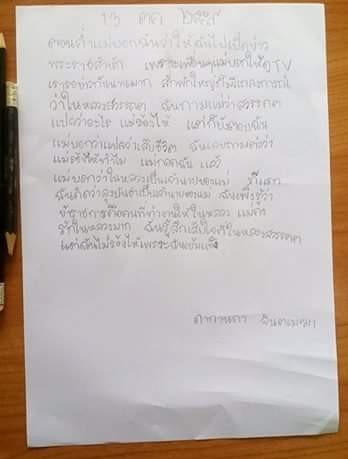 13 ตค 2559
ตอนค่ำแม่บอกฉันว่าให้ฉันไปเปิดข่าว
พระราชสำนัก เพราะเพื่อนๆแม่บอกให้ดูTV
เรารอข่าวกันนานมาก สักพักใหญ่ก็มีแถลงการณ์
ว่าในหลวงสวรรคต ฉันถามแม่ว่าสวรรคต
แปลว่าอะไร แม่ร้องไห้ แต่ก็ยังตอบฉัน
แม่บอกว่าแปลว่าเสียชีวิต ฉันเลยถามต่อว่า
แม่ร้องไห้ทำไม แม่กอดฉัน แล้ว
แม่บอกว่าในหลวงเป็นเจ้านายของแม่ ทีแรก
ฉันคิดว่าลุงเป็นเจ้านายของแม่ ฉันเพิ่งรู้ว่า
ข้าราชการคือคนที่ทำงานให้ในหลวง แม่ฉัน
รักในหลวงมาก ฉันรู้สึกเสียใจที่ในหลวงสวรรคต
แต่ฉันไม่ร้องไห้เพราะฉันเข้มแข็ง